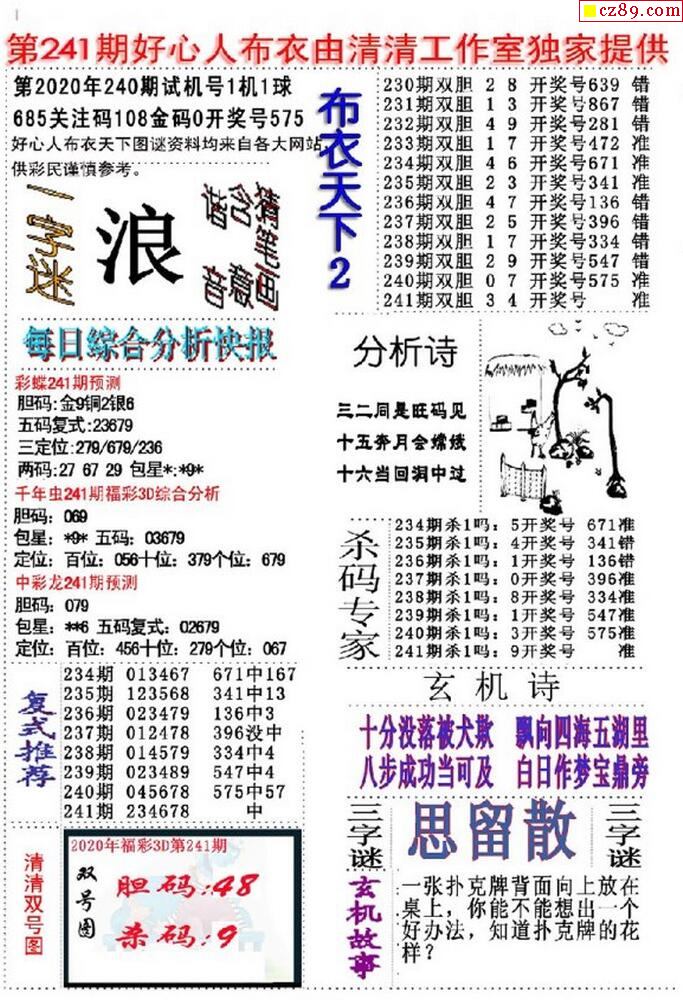 cz89.com
第241期好心人布衣由清清工作室独家提供
第2020年240期试机号1机1球
685关注码108金码0开奖号575
好心人布衣天下图谜资料均来自各大网站
供彩民谨慎参考。
一字迷
浪
猜笔画
含意
谐音
每日综合分析快报
彩蝶241期预测
胆码:金9铜2银6
五码复式:23679
三定位:279/679/236
两码:27 67 29 包星*:*9*
千年虫241期福彩3D综合分析
胆码: 069
包星: *9* 五码: 03679
定位: 百位: 056十位: 379个位: 679
中彩龙241期预测
胆码: 079
包星: **6 五码复式: 02679
定位: 百位: 456十位: 279个位: 067
复式推荐
234期 013467 671中167
235期 123568 341中13
236期 023479 136中3
237期 012478 396没中
238期 014579 334中4
239期 023489 547中4
240期 045678 575中57
241期 234678 中
清清双号图
2020年福彩3D第241期
双号图
胆码:48
杀码:9
布衣天下2
230期双胆 2 8 开奖号639 错
231期双胆 1 3 开奖号867 错
232期双胆 4 9 开奖号281 错
233期双胆 1 7 开奖号472 准
234期双胆 4 6 开奖号671 准
235期双胆 2 3 开奖号341 准
236期双胆 4 7 开奖号136 错
237期双胆 2 5 开奖号396 错
238期双胆 1 7 开奖号334 错
239期双胆 2 9 开奖号547 错
240期双胆 0 7 开奖号575 准
241期双胆 3 4 开奖号 准
分析诗
三二同是旺码见
十五奔月会嫦娥
十六当回润中过
杀码专家
234期杀1吗: 5开奖号 671准
235期杀1吗: 4开奖号 341错
236期杀1吗: 1开奖号 136错
237期杀1吗: 0开奖号 396准
238期杀1吗: 8开奖号 334准
239期杀1吗: 1开奖号 547准
240期杀1吗: 3开奖号 575准
241期杀1吗: 9开奖号 准
玄机诗
十分没落被犬欺 飘向四海五湖里
八步成功当可及 白日作梦宝鼎旁
三字谜
思留散
三字谜
玄机故事
一张扑克牌背面向上放在
桌上，你能不能想出一个
好办法，知道扑克牌的花
样？